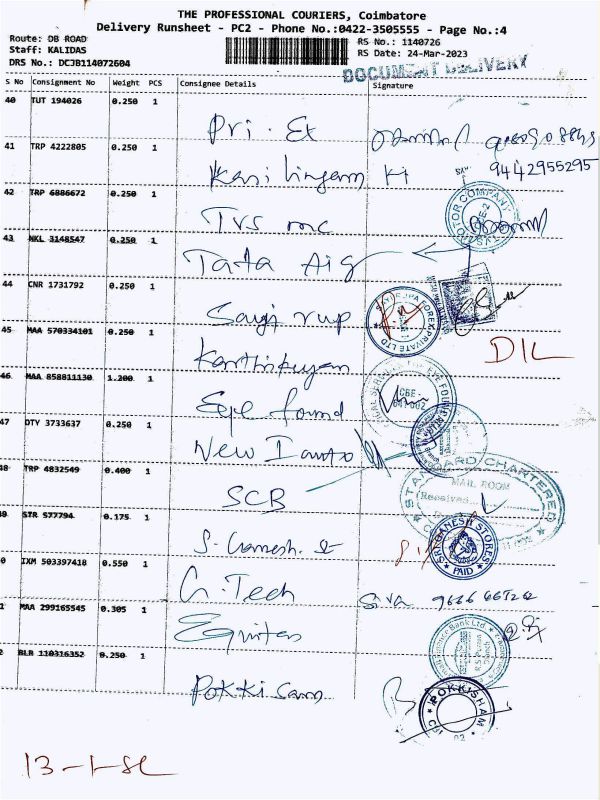 THE PROFESSIONAL COURIERS, Coimbatore
Delivery Runsheet - PC2 - Phone No.:0422-3505555 - Page No.:4
Route: DB ROAD
RS No.: 1140726
Staff: KALIDAS
RS Date: 24-Mar-2023
DRS No.: DCJB114072604
DOCUMENT DELIVERY
S No Consignment No Weight PCS Consignee Details Signature
40 TUT 194026 0.250 1
Pri. Ex
41 TRP 4222805 0.250 1
Kasi lingam H 9442955295
42 TRP 6886672 0.250 1
TVS mc
43 NKL 3148547 0.250 1
Tata Aig
44 CNR 1731792 0.250 1
Sayji rup
FOREX PRIVATE LTD
45 MAA 570334101 0.250 1
DIL
Karthikeyan
46 MAA 858811130 1.200 1
Eye found
CBE - 641 002
47 DTY 3733637 0.250 1
New I
48 TRP 4832549 0.400 1
SCB
STANDARD CHARTERED
MAIL ROOM
Received
STR 577794 0.175 1
S. Ganesh. St
SRI GANESH STORES
PAID
0 IXM 503397418 0.550 1
G. Tech Siva
1 MAA 299165545 0.305 1
Equitas
Finance Bank Ltd.
BLR 110316352 0.250 1
Pokkisam
POKKISHAM
13-1-SL